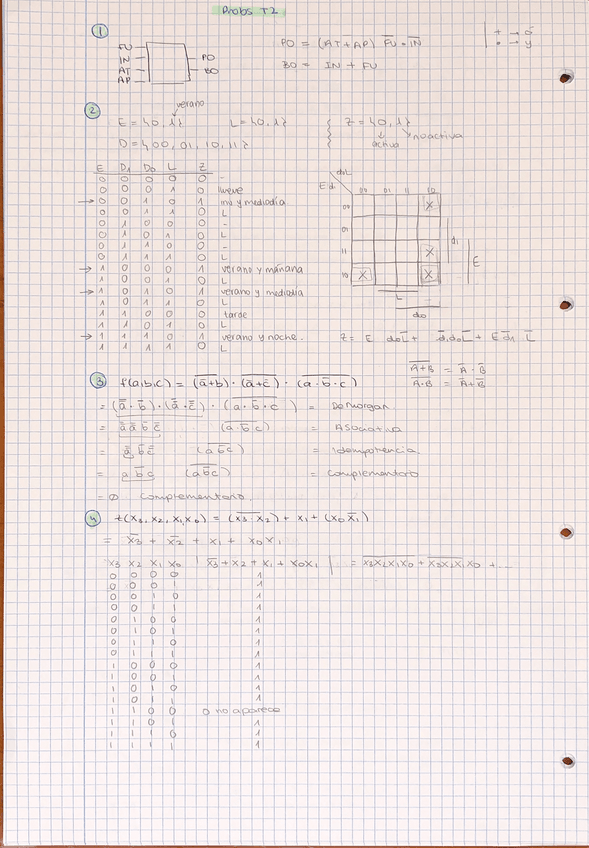 Probs T2
① FU IN AT AP PO BO
PO = (AT+AP) F̅U̅ · I̅N̅
+ → ó
• → y
BO = IN + FU
② verano
E = {0,1} L = {0,1} Z = {0,1}
D = {00, 01, 10, 11} activa no activa
E D₁ D₀ L Z
0 0 0 0 0 -
0 0 0 1 0 llueve
→ 0 0 1 0 1 inv y mediodía
0 0 1 1 0 L
0 1 0 0 0 -
0 1 0 1 0 L
0 1 1 0 0 -
0 1 1 1 0 L
→ 1 0 0 0 1 verano y mañana
1 0 0 1 0 L
→ 1 0 1 0 1 verano y mediodía
1 0 1 1 0 L
1 1 0 0 0 tarde
1 1 0 1 0 L
→ 1 1 1 0 1 verano y noche.
1 1 1 1 0 L
d₀L
E d₁ 00 01 11 10
00 X
01
11 X
10 X X
d₁ E
L
d₀
Z = E d₀L̅ + d̅₁d₀L̅ + E d̅₁ L̅
A̅+̅B̅ = A̅ · B̅
A̅·̅B̅ = A̅+B̅
③ f(a,b,c) = (a̅+̅b̅) · (a̅+̅c̅) · (a · b̅ · c)
= (a̅ · b̅) · (a̅ · c̅) · (a · b̅ · c) = DeMorgan
= a̅ a̅ b̅ c̅ (a b̅ c) = Asociativa
= a̅ b̅ c̅ (a b̅ c) = Idempotencia
= a b̅ c (a b̅ c) = Complementario
= ∅ Complementario.
④ f(x₃, x₂, x₁, x₀) = (x̅₃̅ ̅x̅₂̅) + x₁ + (x₀ x̅₁)
= x̅₃ + x̅₂ + x₁ + x₀ x₁
x₃ x₂ x₁ x₀ x̅₃ + x₂ + x₁ + x₀x₁ = x̅₃x̅₂x̅₁x̅₀ + x̅₃x̅₂x̅₁x₀ + ...
0 0 0 0 1
0 0 0 1 1
0 0 1 0 1
0 0 1 1 1
0 1 0 0 1
0 1 0 1 1
0 1 1 0 1
0 1 1 1 1
1 0 0 0 1
1 0 0 1 1
1 0 1 0 1
1 0 1 1 1
1 1 0 0 0 no aparece
1 1 0 1 1
1 1 1 0 1
1 1 1 1 1